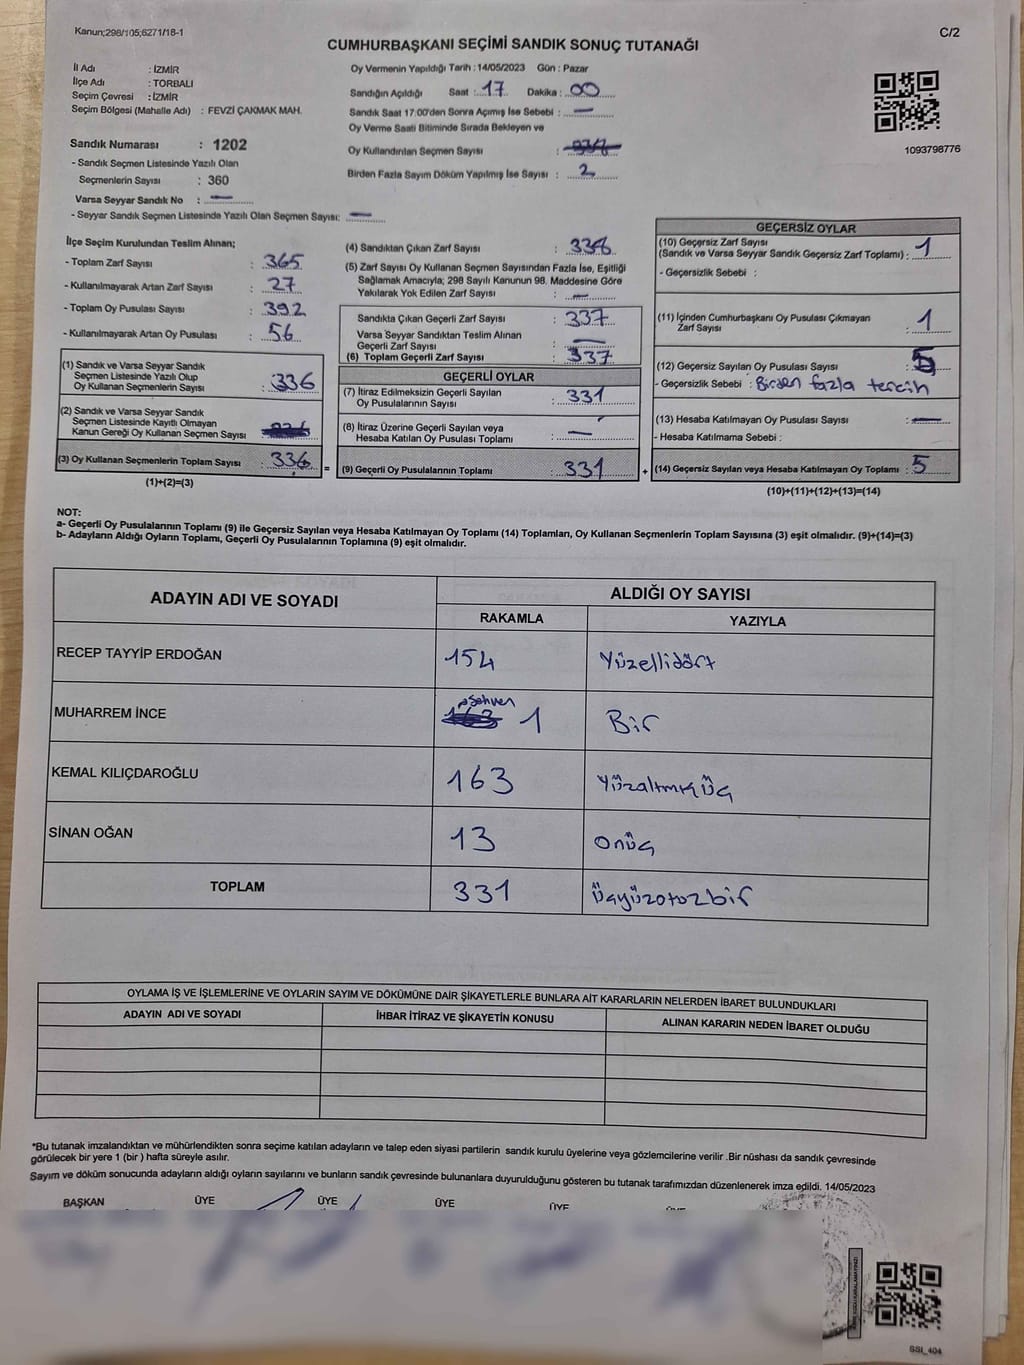 Kanun;298/105;6271/18-1
C/2
CUMHURBAŞKANI SEÇİMİ SANDIK SONUÇ TUTANAĞI
İl Adı : İZMİR
İlçe Adı : TORBALI
Seçim Çevresi : İZMİR
Seçim Bölgesi (Mahalle Adı) : FEVZİ ÇAKMAK MAH.
Oy Vermenin Yapıldığı Tarih : 14/05/2023 Gün : Pazar
Sandığın Açıldığı Saat : 17 Dakika : 00
Sandık Saat 17:00'den Sonra Açımış İse Sebebi : —
Oy Verme Saati Bitiminde Sırada Bekleyen ve
Oy Kullandırılan Seçmen Sayısı :
Birden Fazla Sayım Döküm Yapılmış İse Sayısı : 2
1093798776
Sandık Numarası : 1202
- Sandık Seçmen Listesinde Yazılı Olan
Seçmenlerin Sayısı : 360
Varsa Seyyar Sandık No : —
- Seyyar Sandık Seçmen Listesinde Yazılı Olan Seçmen Sayısı: —
İlçe Seçim Kurulundan Teslim Alınan;
- Toplam Zarf Sayısı : 365
- Kullanılmayarak Artan Zarf Sayısı : 27
- Toplam Oy Pusulası Sayısı : 392
- Kullanılmayarak Artan Oy Pusulası : 56
(1) Sandık ve Varsa Seyyar Sandık
Seçmen Listesinde Yazılı Olup
Oy Kullanan Seçmenlerin Sayısı : 336
(2) Sandık ve Varsa Seyyar Sandık
Seçmen Listesinde Kayıtlı Olmayan
Kanun Gereği Oy Kullanan Seçmen Sayısı :
(3) Oy Kullanan Seçmenlerin Toplam Sayısı : 336
(1)+(2)=(3)
(4) Sandıktan Çıkan Zarf Sayısı : 338
(5) Zarf Sayısı Oy Kullanan Seçmen Sayısından Fazla İse, Eşitliği
Sağlamak Amacıyla; 298 Sayılı Kanunun 98. Maddesine Göre
Yakılarak Yok Edilen Zarf Sayısı : —
Sandıkta Çıkan Geçerli Zarf Sayısı : 337
Varsa Seyyar Sandıktan Teslim Alınan
Geçerli Zarf Sayısı : —
(6) Toplam Geçerli Zarf Sayısı : 337
GEÇERLİ OYLAR
(7) İtiraz Edilmeksizin Geçerli Sayılan
Oy Pusulalarının Sayısı : 331
(8) İtiraz Üzerine Geçerli Sayılan veya
Hesaba Katılan Oy Pusulası Toplamı : —
= (9) Geçerli Oy Pusulalarının Toplamı : 331 +
GEÇERSİZ OYLAR
(10) Geçersiz Zarf Sayısı
(Sandık ve Varsa Seyyar Sandık Geçersiz Zarf Toplamı) : 1
- Geçersizlik Sebebi :
(11) İçinden Cumhurbaşkanı Oy Pusulası Çıkmayan
Zarf Sayısı : 1
(12) Geçersiz Sayılan Oy Pusulası Sayısı : 5
- Geçersizlik Sebebi : Birden fazla tercih
(13) Hesaba Katılmayan Oy Pusulası Sayısı : —
- Hesaba Katılmama Sebebi :
(14) Geçersiz Sayılan veya Hesaba Katılmayan Oy Toplamı : 5
(10)+(11)+(12)+(13)=(14)
NOT:
a- Geçerli Oy Pusulalarının Toplamı (9) ile Geçersiz Sayılan veya Hesaba Katılmayan Oy Toplamı (14) Toplamları, Oy Kullanan Seçmenlerin Toplam Sayısına (3) eşit olmalıdır. (9)+(14)=(3)
b- Adayların Aldığı Oyların Toplamı, Geçerli Oy Pusulalarının Toplamına (9) eşit olmalıdır.
ADAYIN ADI VE SOYADI ALDIĞI OY SAYISI
RAKAMLA YAZIYLA
RECEP TAYYİP ERDOĞAN 154 Yüzellidört
MUHARREM İNCE sehven 1 Bir
KEMAL KILIÇDAROĞLU 163 Yüzaltmışüç
SİNAN OĞAN 13 onüç
TOPLAM 331 Üçyüzotuzbir
OYLAMA İŞ VE İŞLEMLERİNE VE OYLARIN SAYIM VE DÖKÜMÜNE DAİR ŞİKAYETLERLE BUNLARA AİT KARARLARIN NELERDEN İBARET BULUNDUKLARI
ADAYIN ADI VE SOYADI İHBAR İTİRAZ VE ŞİKAYETİN KONUSU ALINAN KARARIN NEDEN İBARET OLDUĞU
*Bu tutanak imzalandıktan ve mühürlendikten sonra seçime katılan adayların ve talep eden siyasi partilerin sandık kurulu üyelerine veya gözlemcilerine verilir .Bir nüshası da sandık çevresinde
görülecek bir yere 1 (bir ) hafta süreyle asılır.
Sayım ve döküm sonucunda adayların aldığı oyların sayılarını ve bunların sandık çevresinde bulunanlara duyurulduğunu gösteren bu tutanak tarafımızdan düzenlenerek imza edildi. 14/05/2023
BAŞKAN ÜYE ÜYE ÜYE ÜYE
SSI_404